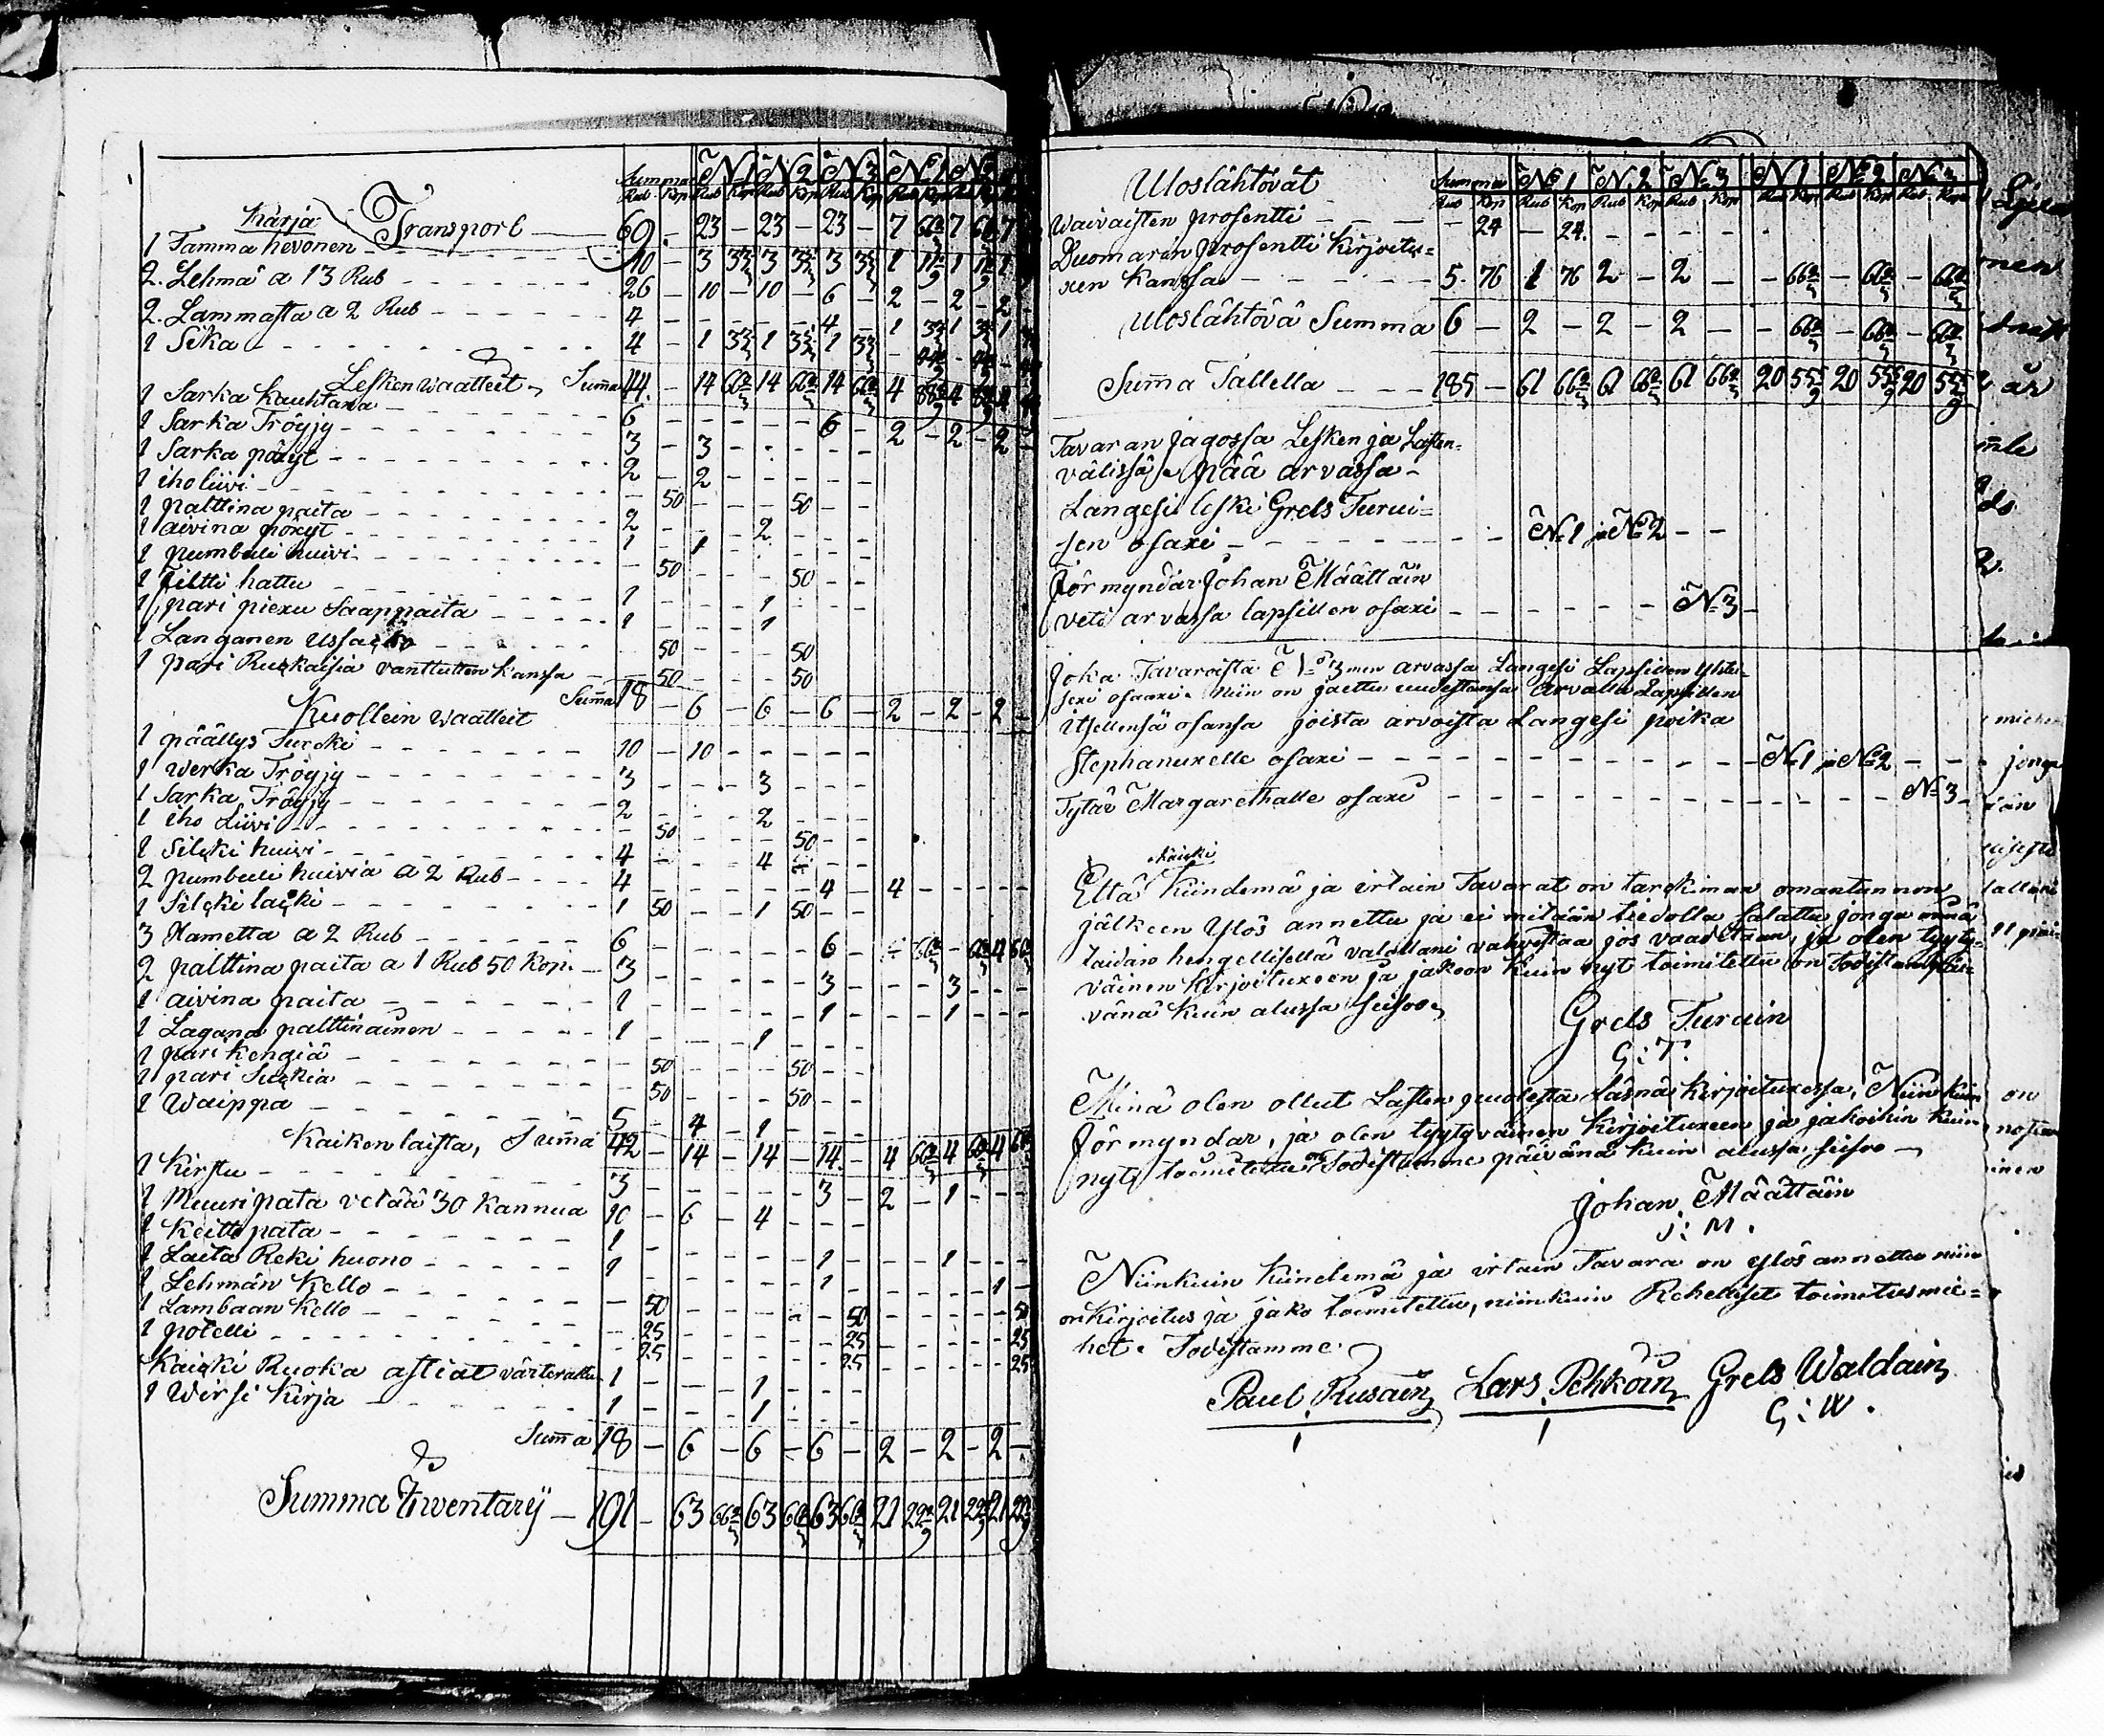 Summa N 1 N 2 N 3 N 1 N 2
Rub Kop Rub Kop Rub Kop Rub Kop Rub Kop
Karja Transport — 69. — 23 — 23 — 23 — 7 66 2/3 7 66 2/3 7
1 Tamma hevonen — 10 — 3 33 1/3 3 33 1/3 3 33 1/3 1 11 1/9 1 11 1/9 1
2. Lehmä a 13 Rub — 26 — 10 — 10 — 6 — 2 — 2 — 2
2. Lammasta a 2 Rub — 4 — — — 4 — 1 33 1/3 1 33 1/3 1
1 Sika — 4 — 1 33 1/3 1 33 1/3 1 33 1/3 — 44 4/9 — 44 4/9 —
Lesken waatteet Summa 44. — 14 66 2/3 14 66 2/3 14 66 2/3 4 88 8/9 4 88 8/9 4
1 Sarka Kauhtana — 6 — — — 6 — 2 — 2 — 2
1 Sarka Tröyjy — 3 — 3 —
1 Sarka pöxyt — 2 — 2 —
1 iho liivi — 50 — 50
1 palttina paita — 2 — 2
1 aivina pöxyt — 1 — 1
1 pumbuli huivi — 50 — 50
1 Filtti hattu — 1 — 1
1 pari piexu Saappaita — 1 — 1
1 Langanen Ussacko — 50 — 50
1 pari Ruckaisia vanttutten kanssa — 50 — 50
Summa 18 — 6 — 6 — 6 — 2 — 2 — 2 —
Kuollein Waatteet
1 päällys Turcki — 10 — 10 —
1 Werka Tröyjy — 3 — 3
1 Sarka Tröyjy — 2 — 2
1 iho Liivi — 50 — 50
1 Silcki huivi — 4 — 4
2 pumbuli huivia a 2 Rub — 4 — 4 — 4 —
1 Silcki lacki — 1 50 — 1 50
3 Hametta a 2 Rub — 6 — 6 — — 66 2/3 — 66 2/3 4 66 2/3
2 palttina paita a 1 Rub 50 Kop. — 3 — 3 — 3
1 aivina paita — 1 — 1 — 1
1 Lagana palttinainen — 1 — 1
1 pari Kengiä — 50 — 50
1 pari Suckia — 50 — 50
1 Waippa — 5 — 4 — 1
Kaikenlaista, Summa 42 — 14 — 14 — 14 — 4 66 2/3 4 66 2/3 4 66 2/3
1 Kirstu — 3 — 3 — 2 — 1
1 Muuripata vetää 30 Kannua 10 — 6 — 4
1 Keitto pata — 1 — 1 — 1
1 Laita Reki huono — 1 — 1 — 1 —
1 Lehmän Kello — 50 — 50 — 50
1 Lambaan Kello — 25 — 25 — 25
1 potelli — 25 — 25 — 25
Kaicki Ruoka astiat värterattu 1 — 1
1 Wirsi Kirja — 1 — 1
Summa 18 — 6 — 6 — 6 — 2 — 2 — 2 —
Summa Inventarij — 191 — 63 66 2/3 63 66 2/3 63 66 2/3 21 22 2/9 21 22 2/9 21 22 2/9
Uloslähtövät Summa N 1 N 2 N 3 N 1 N 2 N 3
Rub Kop Rub Kop Rub Kop Rub Kop Rub Kop Rub Kop Rub Kop
Waivaisten prosentti — 24 — 24.
Duomarin prosentti Kirjoitu=
xen Kanssa — 5. 76 1 76 2 — 2 — — 66 2/3 — 66 2/3 — 66 2/3
Uloslähtövä Summa 6 — 2 — 2 — 2 — — 66 2/3 — 66 2/3 — 66 2/3
Summa Tallella — 185 — 61 66 2/3 61 66 2/3 61 66 2/3 20 55 5/9 20 55 5/9 20 55 5/9
Tavaran jagossa Lesken ja Lasten
välissä, pää arvassa —
Langesi leski Grels Turui=
sen osaxi — N 1 ja N 2 — —
Förmyndar Johan Määttäin
veti arvassa lapsillen osaxi — N 3 —
Joka Tavaroista N 3 men arvassa Langesi Lapsiden Yhtei=
sexi osaaxi. Niin on jaettu uudestansa arvalla Lapsillen
itsellensä osansa joista arvoista Langesi poika
Stephanuxelle osaxi — N 1 ja N 2 —
Tytär Margarethalle osaxi — N 3 —
kaicki
Että Kiindemä ja irtain Tavarat on tarckiman omantunnon
jälkeen Ylös annettu ja ei mitään tiedolla salattu jonga minä
taidan hengellisellä valallani vahvistaa jos vaaditaan, ja olen tyyty=
väinen Kirjoituxeen ja jakoon Kuin nyt toimitettu on Todistan päi=
vänä Kuin alussa seisoo
Grels Turuin
G: T:
Minä olen ollut Lasten puolesta läsnä kirjoituxessa, Niinkuin
Förmyndar, ja olen tyytyväinen Kirjoituxeen ja jakoihin Kuin
nyt toimitettu on Todistamme päivänä Kuin alussa seisoo —
Johan Määttäin
J: M.
Niinkuin Kiindemä ja irtain Tavara on ylös annettu niin
on Kirjoitus ja jako toimitettu, niinkuin Rehelliset toimitusmie=
het. Todistamme.
Paul Rusain Lars Pehkoin Grels Waldain
G: W.